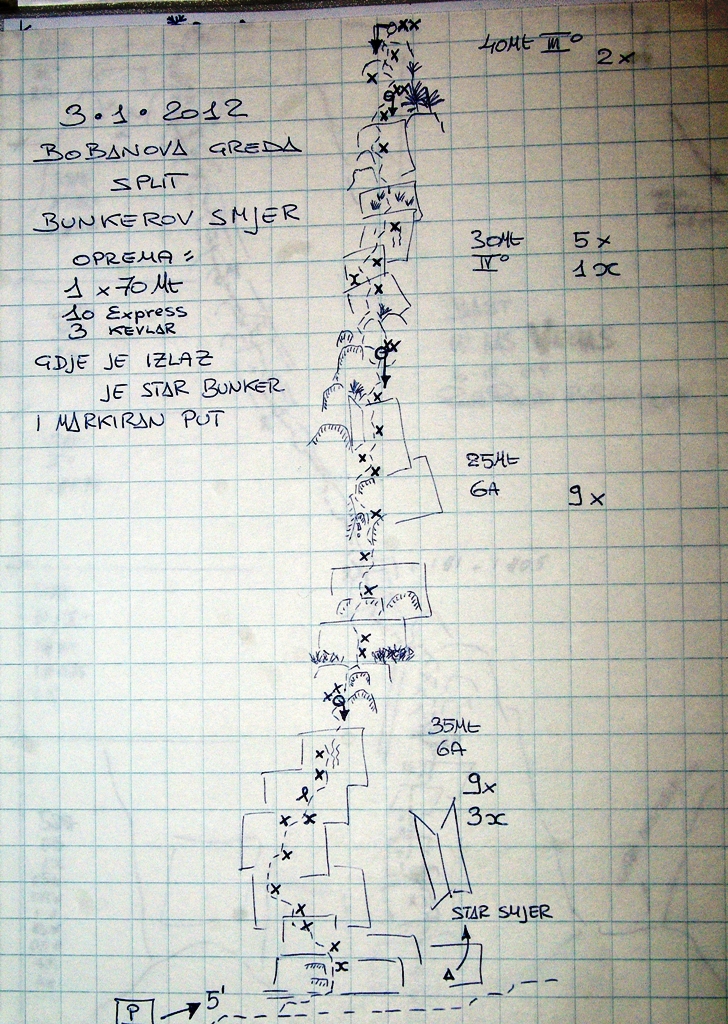 3.1.2012
BOBANOVA GREDA
SPLIT
BUNKEROV SMJER
OPREMA =
1 x 70 Mt
10 Express
3 KEVLAR
GDJE JE IZLAZ
JE STAR BUNKER
I MARKIRAN PUT
40Mt III°
2x
30Mt 5x
IV° 1x
25Mt
6A 9x
35Mt
6A
9x
3x
STAR SMJER
P 5'